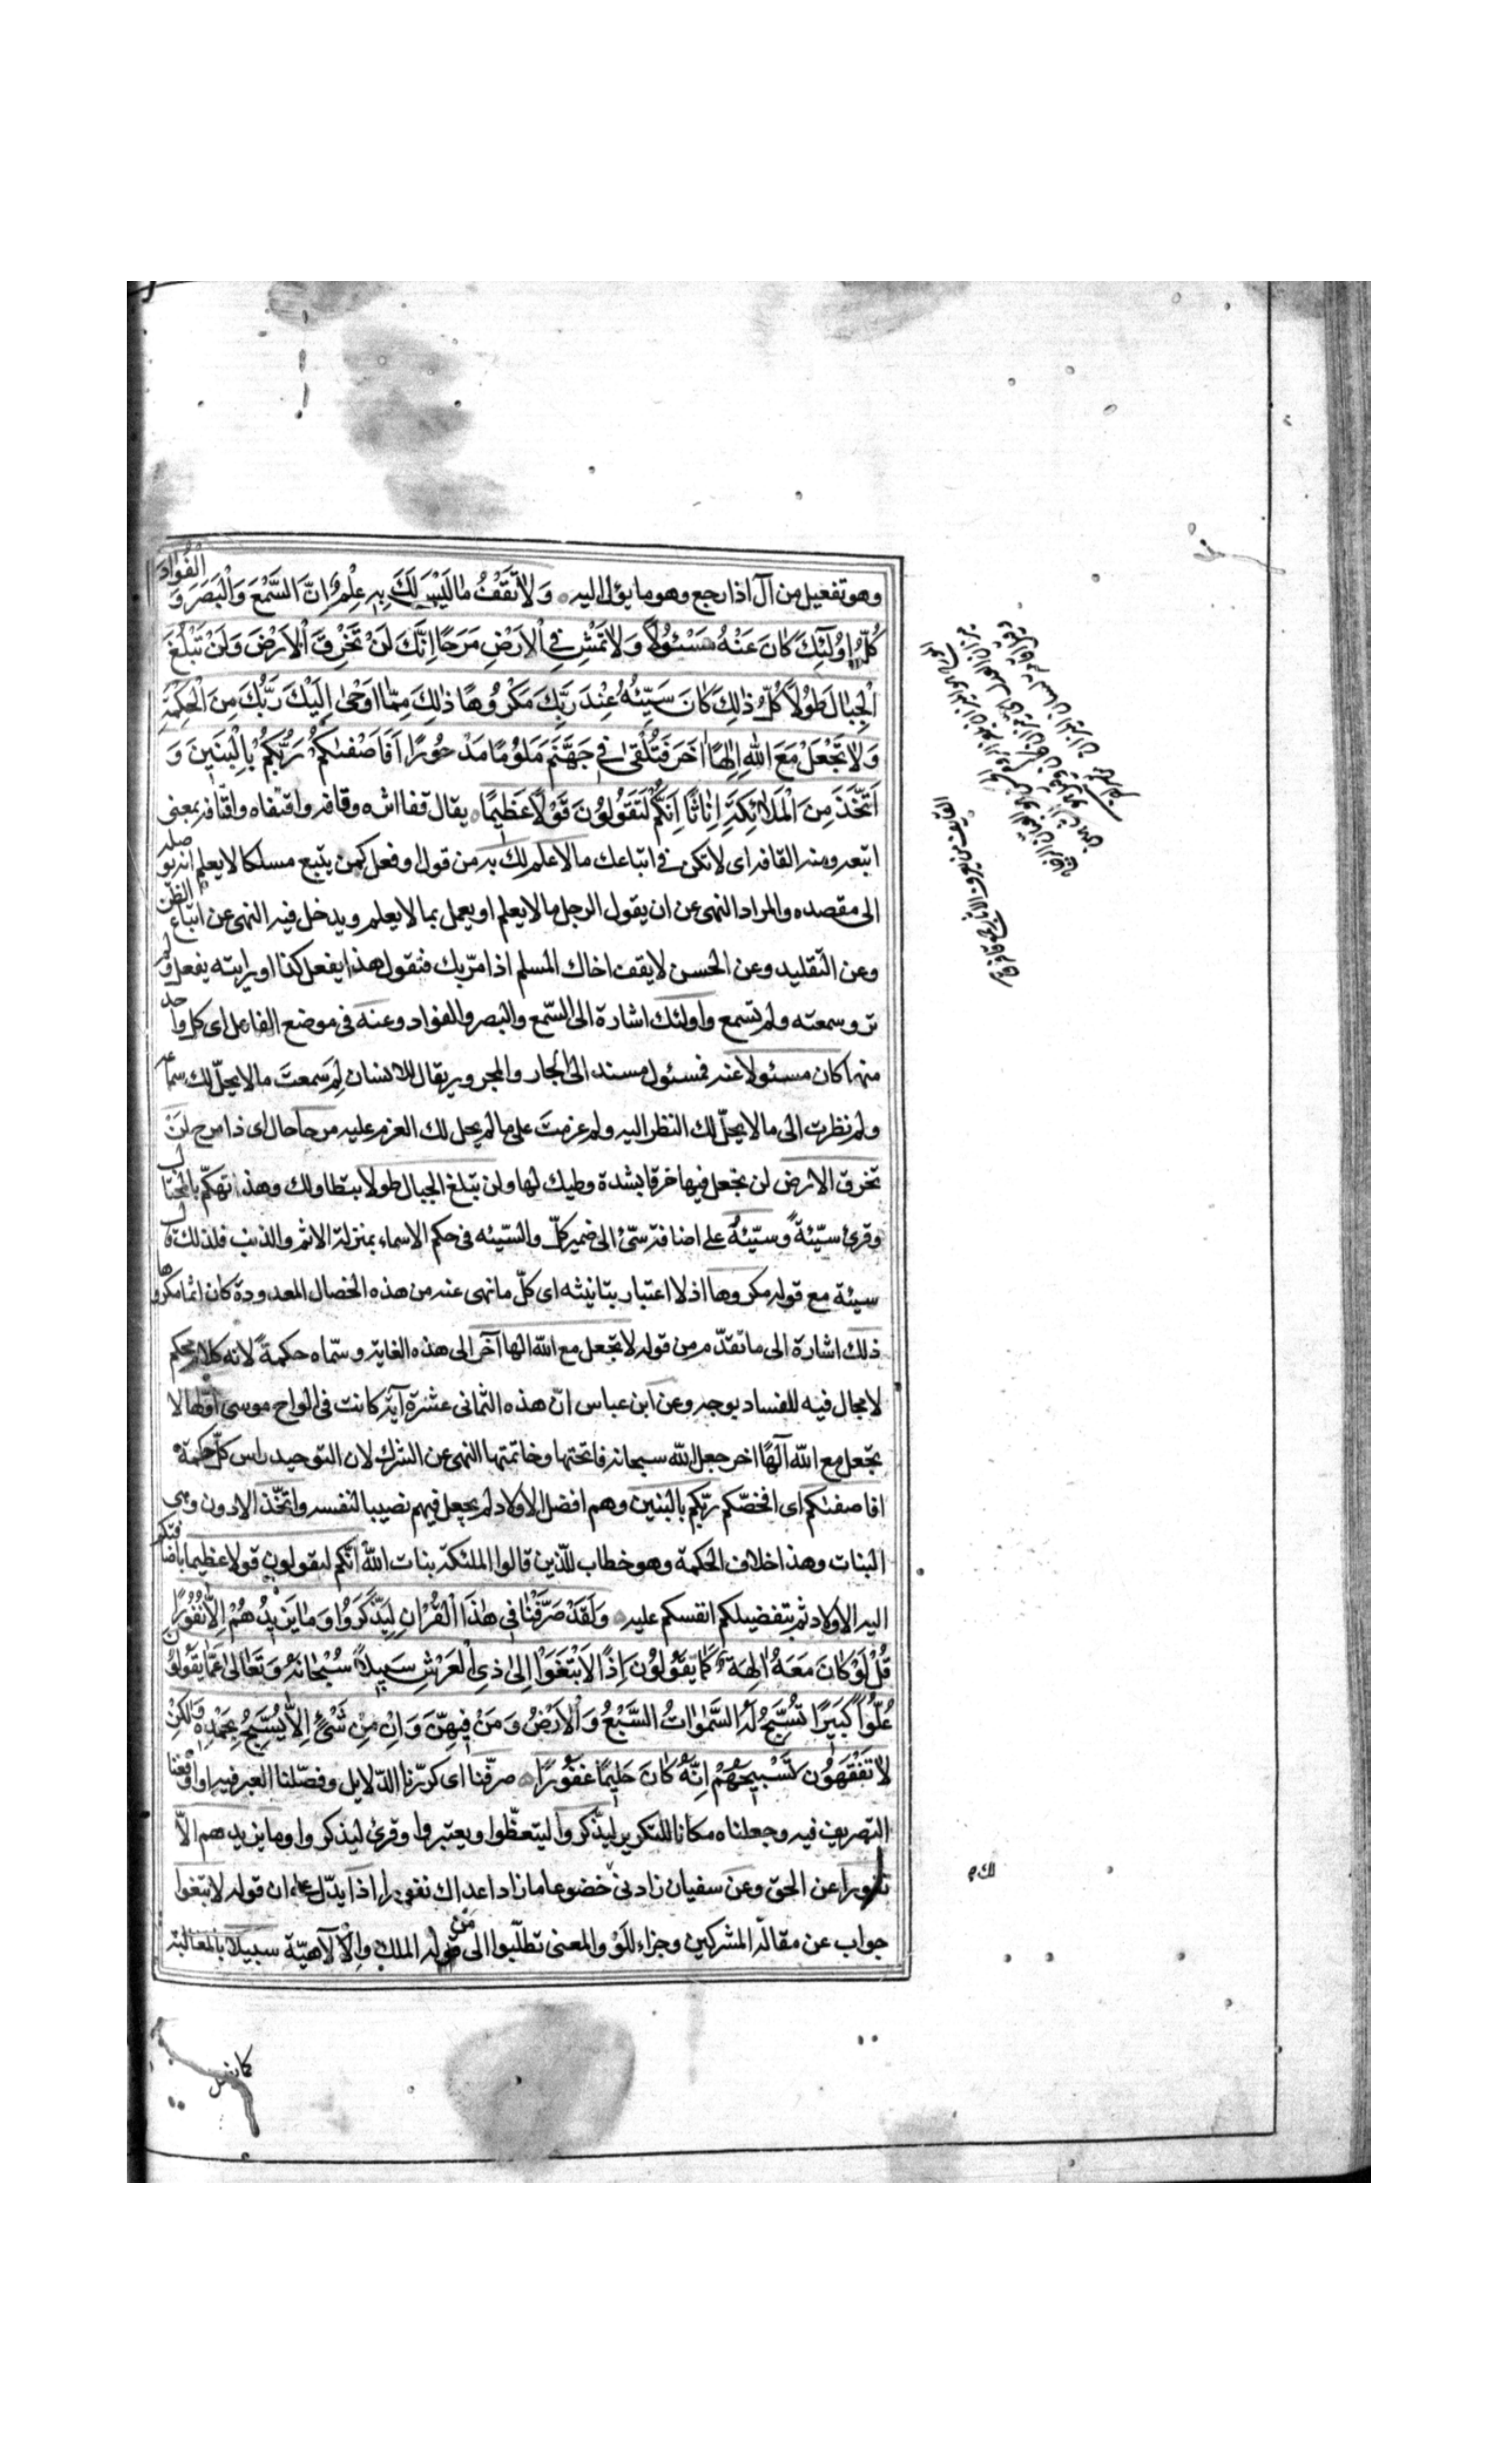 وهو تفعيل من آل اذا رجع وهو ما يؤل اليه وَلَا تَقْفُ مَا لَيْسَ لَكَ بِهِ عِلْمٌ اِنَّ السَّمْعَ وَالْبَصَرَ وَ الْفُؤَادَ
كُلُّ اُولٰئِكَ كَانَ عَنْهُ مَسْئُولًا وَلَا تَمْشِ فِي الْاَرْضِ مَرَحًا اِنَّكَ لَنْ تَخْرِقَ الْاَرْضَ وَلَنْ تَبْلُغَ
الْجِبَالَ طُولًا كُلُّ ذٰلِكَ كَانَ سَيِّئُهُ عِنْدَ رَبِّكَ مَكْرُوهًا ذٰلِكَ مِمَّا اَوْحٰى اِلَيْكَ رَبُّكَ مِنَ الْحِكْمَةِ
وَلَا تَجْعَلْ مَعَ اللهِ اِلٰهًا اٰخَرَ فَتُلْقٰى فِي جَهَنَّمَ مَلُومًا مَدْحُورًا اَفَاَصْفٰىكُمْ رَبُّكُمْ بِالْبَنِينَ وَ
اتَّخَذَ مِنَ الْمَلَائِكَةِ اِنَاثًا اِنَّكُمْ لَتَقُولُونَ قَوْلًا عَظِيمًا يقال قفا اثره وقافه واقتفاه واقتافه بمعنى
اتبعه ومنه القافه اى لا تكن فى اتباعك ما لا علم لك به من قول او فعل كمن يتبع مسلكا لا يعلم انه يوصله
الى مقصده والمراد النهى عن ان يقول الرجل ما لا يعلم او يعمل بما لا يعلم ويدخل فيه النهى عن اتباع الظن
وعن التقليد وعن الحسن لا يقف اخاك المسلم اذا مرّ بك فتقول هذا يفعل كذا او رايته يفعل ولم
تر وسمعته ولم تسمع واولئك اشارة الى السّمع والبصر والفواد وعنه فى موضع الفاعل اى كل واحد
منها كان مسئولا عنه فمسئول مسند الى الجار والمجرور يقال للانسان لِمَ سَمعتَ ما لا يحلّ لك سماعه
ولم نظرت الى ما لا يحلّ لك النظر اليه ولم عزمتَ على ما لم يحل لك العزم عليه مرحا حال اى ذا مرح لَنْ
تخرق الارض لن تجعل فيها خرقا بشدة وطيك لها ولن تبلغ الجبال طولا بتطاولك وهذا تهكّم بالمختال
وقرئ سيّئةً وسيّئهُ على اضافة سيّئ الى ضمير كلّ والسّيئه فى حكم الاسماء بمنزلة الاثم والذنب فلذلك قال
سيئة مع قوله مكروها اذ لا اعتبار بتانيثه اى كلّ ما نهى عنه من هذه الخصال المعدودة كان اثما مكروها
ذلك اشارة الى ما تقدّم من قوله لا تجعل مع الله الها آخر الى هذه الغاية وسمّاه حكمةً لانه كلام محكم
لا مجال فيه للفساد بوجه وعن ابن عباس انّ هذه الثمانى عشرة آية كانت فى الواح موسى اوّلها لا
تجعل مع الله آلهًا اخر جعل الله سبحانه فاتحتها وخاتمتها النهى عن الشرك لان التوحيد راس كلّ حكمة
افاصفىكم اى افخصّكم ربّكم بالبنين وهم افضل الاولاد لم يجعل فيهم نصيبا لنفسه واتّخذ الادون وهى
البنات وهذا خلاف الحكمة وهو خطاب للّذين قالوا الملئكة بنات الله انّكم لتقولون قولا عظيما باضافتكم
اليه الاولاد ثم بتفضيلكم انفسكم عليه وَلَقَدْ صَرَّفْنَا فِي هٰذَا الْقُرْاٰنِ لِيَذَّكَّرُوا وَمَا يَزِيدُهُمْ اِلَّا نُفُورًا
قُلْ لَوْ كَانَ مَعَهُ اٰلِهَةٌ كَمَا يَقُولُونَ اِذًا لَابْتَغَوْا اِلٰى ذِي الْعَرْشِ سَبِيلًا سُبْحَانَهُ وَتَعَالٰى عَمَّا يَقُولُونَ
عُلُوًّا كَبِيرًا تُسَبِّحُ لَهُ السَّمٰوَاتُ السَّبْعُ وَالْاَرْضُ وَمَنْ فِيهِنَّ وَاِنْ مِنْ شَيْءٍ اِلَّا يُسَبِّحُ بِحَمْدِهِ وَلٰكِنْ
لَا تَفْقَهُونَ تَسْبِيحَهُمْ اِنَّهُ كَانَ حَلِيمًا غَفُورًا صرّفنا اى كرّرنا الدّلايل وفصّلنا العبر فيه او اوقعنا
التصريف فيه وجعلناه مكانا للتكرير ليذّكروا ليتعظّوا ويعتبروا وقرئ ليذكروا وما يزيدهم الّا
نفورا عن الحق وعن سفيان زادنى خضوعا ما زاد اعداك نفورا اذا يدّل على ان قوله لابتغوا
جواب عن مقالة المشركين وجزاء للَوْ والمعنى لطلبوا الى من له الملك والالاهيّة سبيلا بالمغالبة
لك